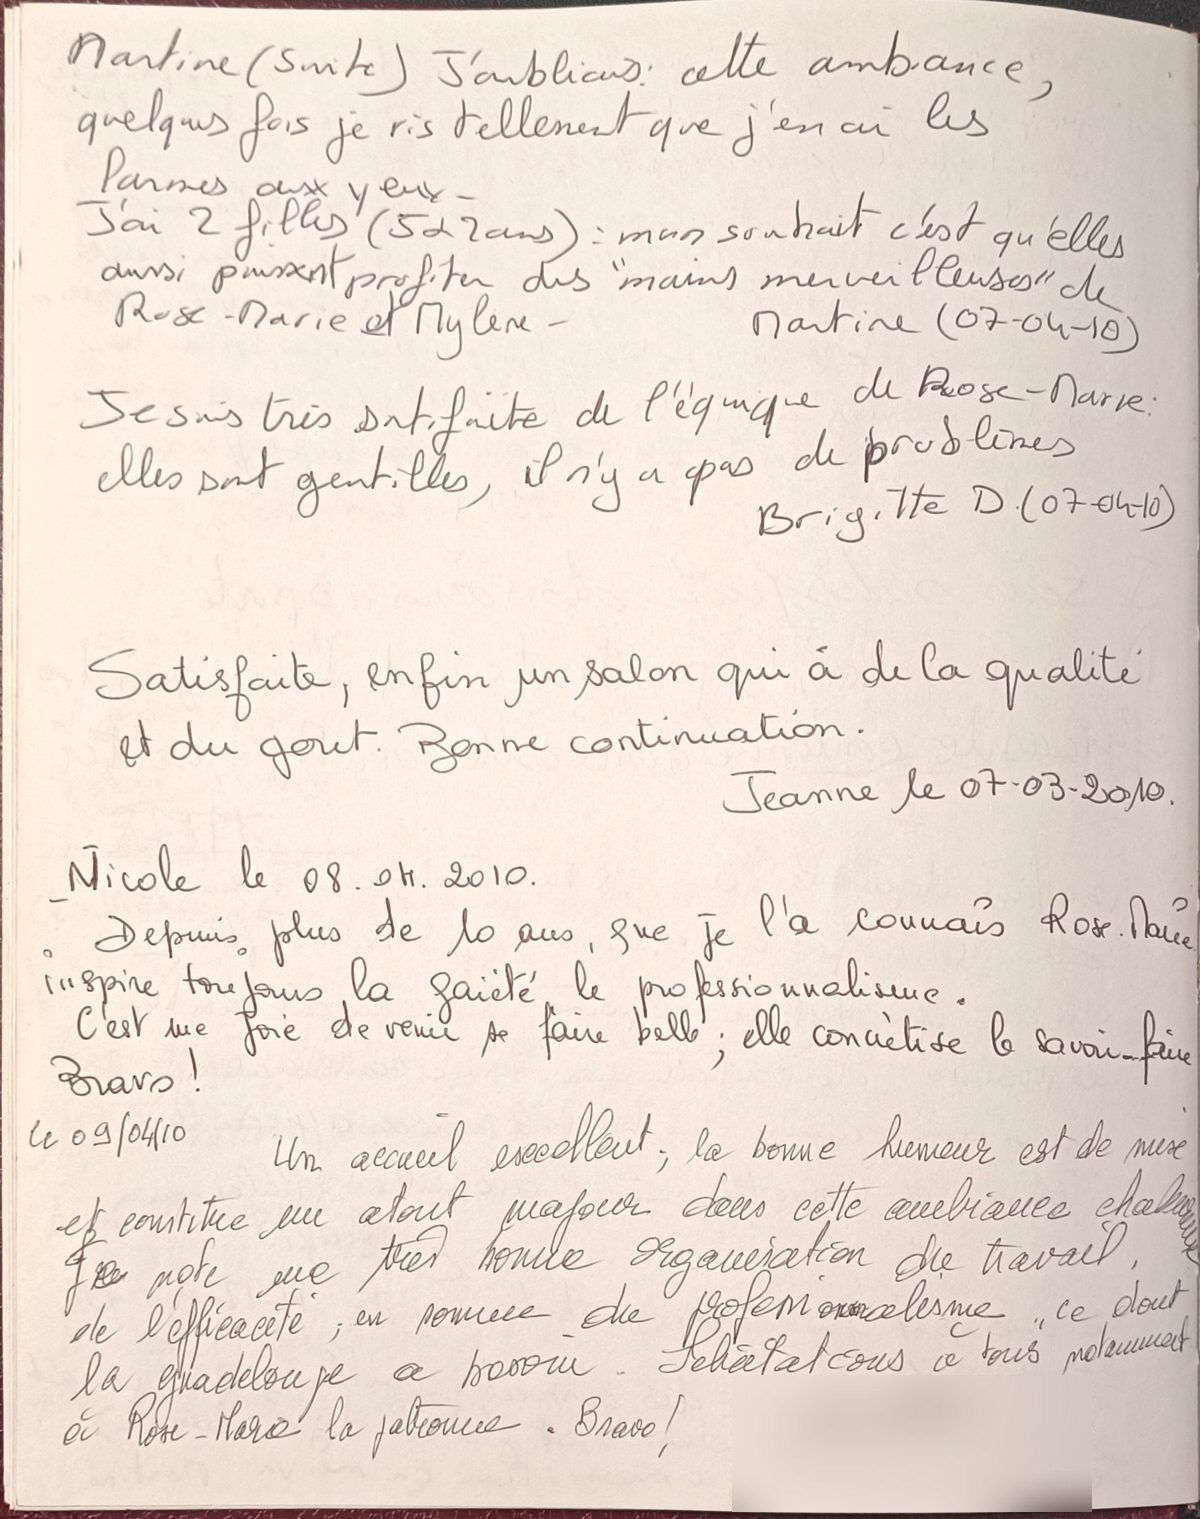 Martine (Suite) J'oubliais: cette ambiance,
quelques fois je ris tellement que j'en ai les
larmes aux yeux -
J'ai 2 filles (5 2 ans) : mon souhait c'est qu'elles
aussi puissent profiter des "mains merveilleuses" de
Rose-Marie et Mylène -
Martine (07-04-10)
Je suis très satisfaite de l'équipe de Rose-Marie:
elles sont gentilles, il n'y a pas de problèmes
Brigitte D. (07-04-10)
Satisfaite, enfin un salon qui à de la qualité
et du gout. Bonne continuation.
Jeanne le 07-03-2010.
Nicole le 08.04.2010.
Depuis plus de 10 ans, que je l'a connaîs Rose-Marie
inspire toujours la gaiété, le professionnalisme.
C'est une joie de venir se faire belle ; elle concrètise le savoir-faire
Bravo !
le 09/04/10
Un accueil excellent, la bonne humeur est de mise
et constitue un atout majeur dans cette ambiance chaleureuse
Je note une très bonne organisation du travail,
de l'efficacité ; en somme du professionnalisme, ce dont
la guadeloupe a besoin. Félicitations à tous notamment
à Rose-Marie la patronne. Bravo !